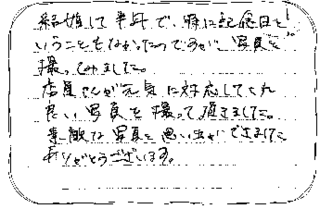 結婚して半年で、特に記念日と
いうこともなかったのですが、写真を
撮ってみました。
店員さんが元気に対応してくれ
良い写真を撮って頂きました。
素敵な写真と思い出ができました
ありがとうございます。